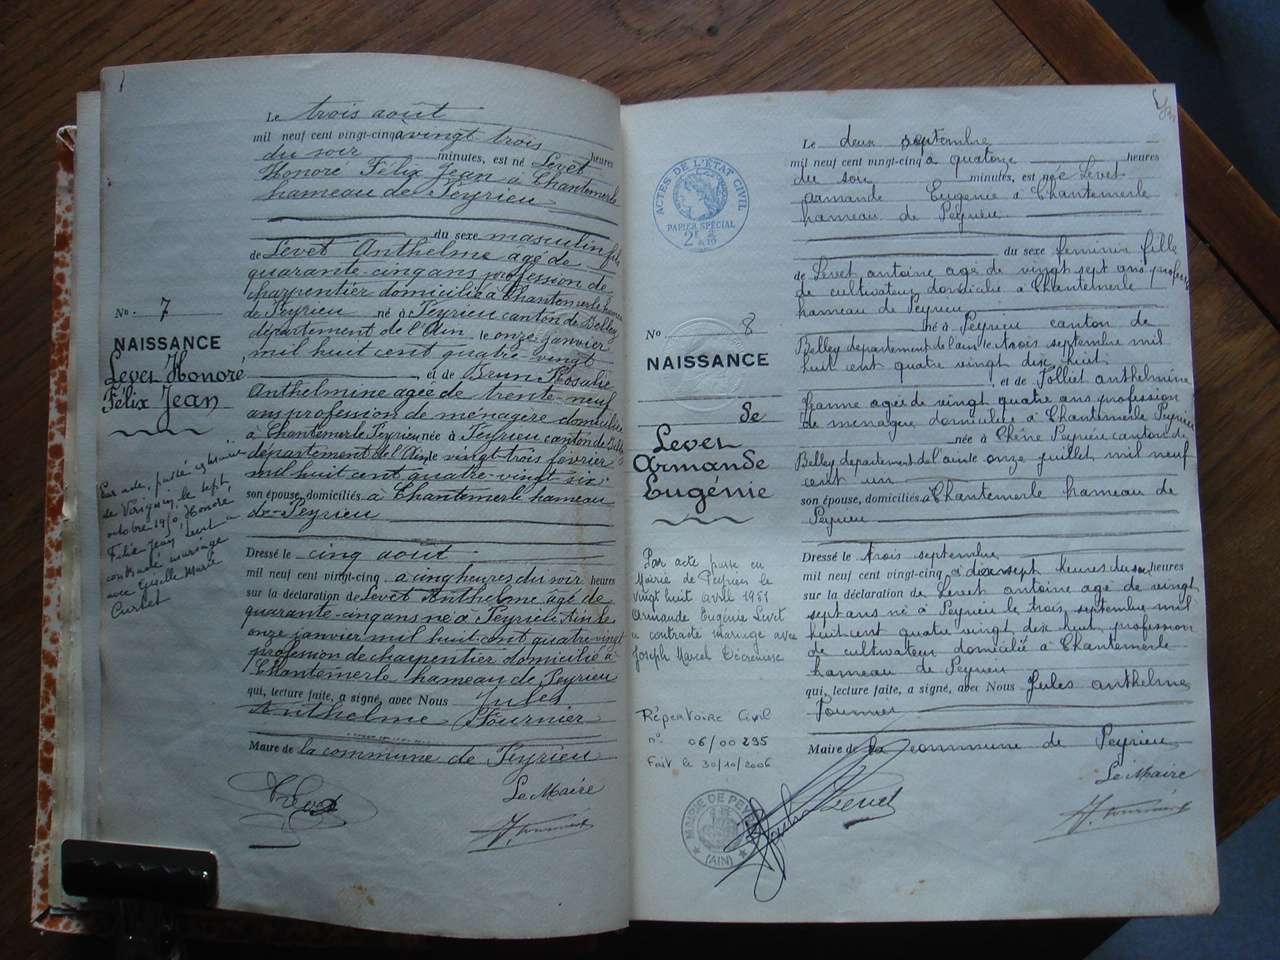 Le trois août
mil neuf cent vingt-cinq à vingt trois heures
du soir minutes, est né Levet
Honoré Félix Jean à Chantemerle
hameau de Peyrieu
du sexe masculin fils
de Levet Anthelme agé de
quarante-cinq ans profession de
charpentier domicilié à Chantemerle hameau
de Peyrieu né à Peyrieu canton de Belley
département de l'Ain le onze janvier
mil huit cent quatre-vingt
et de Brun Rosalie
Anthelmine agée de trente-neuf
ans profession de ménagère domiciliée
à Chantemerle Peyrieu née à Peyrieu canton de Belley
département de l'Ain le vingt-trois février
mil huit cent quatre-vingt six
son épouse, domiciliés à Chantemerle hameau
de Peyrieu
Dressé le cinq août
mil neuf cent vingt-cinq à cinq heures du soir heures
sur la déclaration de Levet Anthelme agé de
quarante-cinq ans né à Peyrieu Ain le
onze janvier mil huit cent quatre-vingt
profession de charpentier domicilié à
Chantemerle hameau de Peyrieu
qui, lecture faite, a signé, avec Nous Jules
Anthelme Fournier
Maire de la commune de Peyrieu
Le Maire
No. 7
NAISSANCE
Levet Honoré
Félix Jean
Par acte, passé en
de Virignin le sept
octobre 1950, Honoré
Félix Jean Levet a
contracté mariage
avec Giselle Marie
ACTES DE L'ÉTAT CIVIL
PAPIER SPÉCIAL
No 8
NAISSANCE
de
Levet
Armande
Eugénie
Par acte passé en
Mairie de Peyrieu le
vingt huit avril 1951
Armande Eugénie Levet
a contracté mariage avec
Joseph Marcel
Répertoire Civil
n° 06/00295
Fait le 30/10/2006
MAIRIE DE PEYRIEU
(AIN)
Le deux septembre
mil neuf cent vingt-cinq à quatorze heures
du soir minutes, est née Levet
Armande Eugénie à Chantemerle
hameau de Peyrieu
du sexe féminin fille
de Levet Antoine agé de vingt sept ans profession
de cultivateur domicilié à Chantemerle
hameau de Peyrieu
né à Peyrieu canton de
Belley département de l'ain le trois septembre mil
huit cent quatre vingt dix huit
et de Jolliet Anthelmine
Jeanne agée de vingt quatre ans profession
de ménagère domiciliée à Chantemerle Peyrieu
née à Chêne Peyrieu canton de
Belley département de l'ain le onze juillet mil neuf
cent un
son épouse, domiciliés à Chantemerle hameau de
Peyrieu
Dressé le trois septembre
mil neuf cent vingt-cinq à dix sept heures du soir heures
sur la déclaration de Levet Antoine agé de vingt
sept ans né à Peyrieu le trois septembre mil
huit cent quatre vingt dix huit, profession
de cultivateur domicilié à Chantemerle
hameau de Peyrieu
qui, lecture faite, a signé, avec Nous Jules Anthelme
Fournier
Maire de la commune de Peyrieu
Le Maire